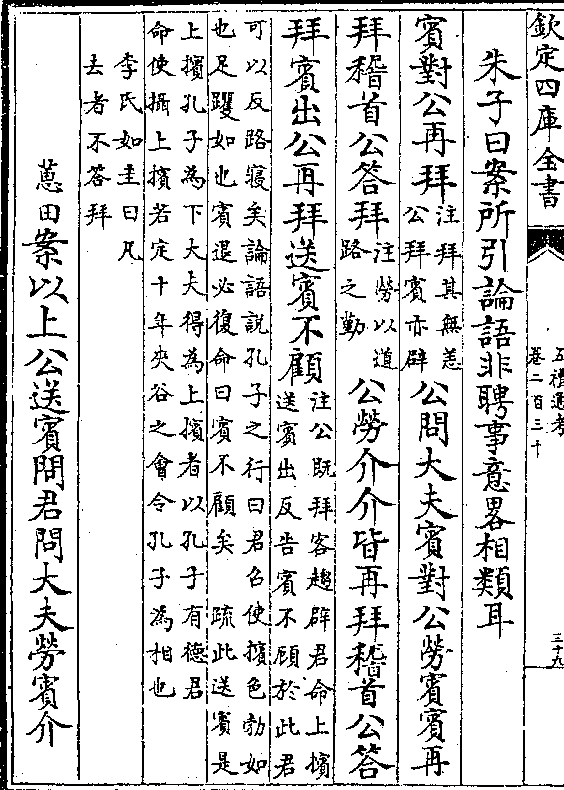 欽定四庫全書
五禮通考
卷二百三十
三十九
朱子曰案所引論語非聘事意畧相類耳
賓對公再拜
注拜其無恙
公拜賓亦辟
公問大夫賓對公勞賓賓再
拜稽首公答拜
注勞以道
路之勤
公勞介介皆再拜稽首公答
拜賓出公再拜送賓不顧
注公既拜客趨辟君命上擯
送賓出反告賓不顧於此君
可以反路寢矣論語說孔子之行曰君召使擯色勃如
也足躩如也賓退必復命曰賓不顧矣 疏此送賓是
上擯孔子為下大夫得為上擯者以孔子有德君
命使攝上擯若定十年夾谷之會令孔子為相也
李氏如圭曰凡
去者不答拜
蕙田案以上公送賓問君問大夫勞賓介